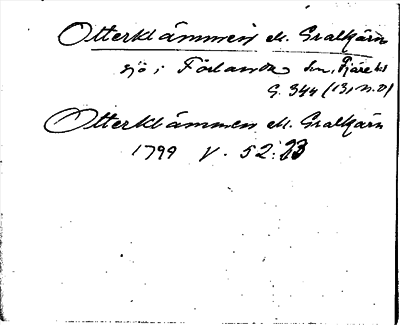 Otterklämmen el. Graltjärn
sjö i Förlanda sn, Fjäre hd
G. 344 (13, n.o)
Otterklämmen el. Graltjärn
1799 V. 52:23